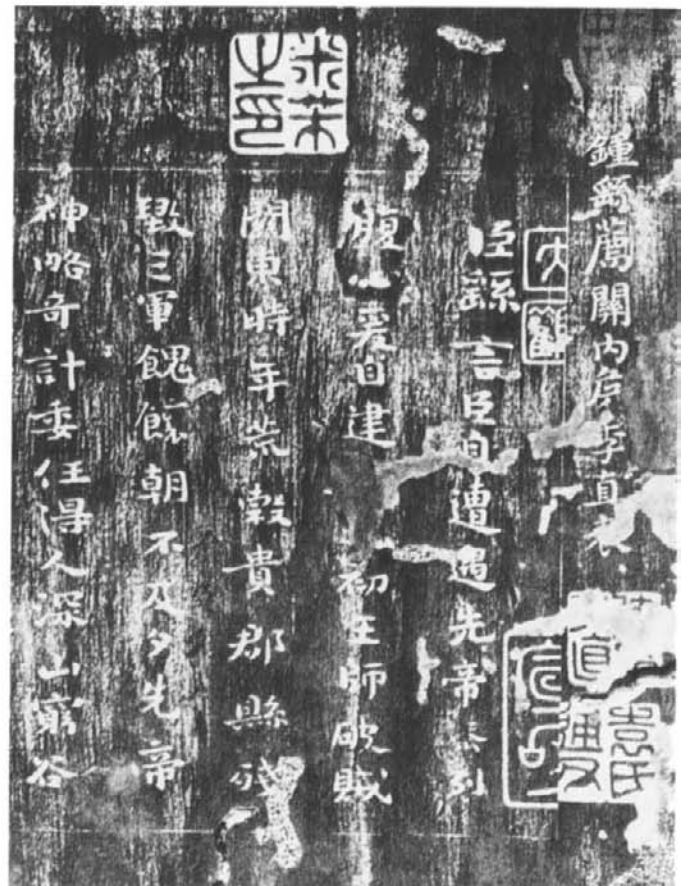 鍾繇薦關內矦季直表
臣繇言臣自遭遇先帝忝列
腹心爰自建初王師破賊
關東時年荒穀貴郡縣殘
毀三軍餽饟朝不及夕先帝
神略奇計委任得人深山窮谷
米芾之印